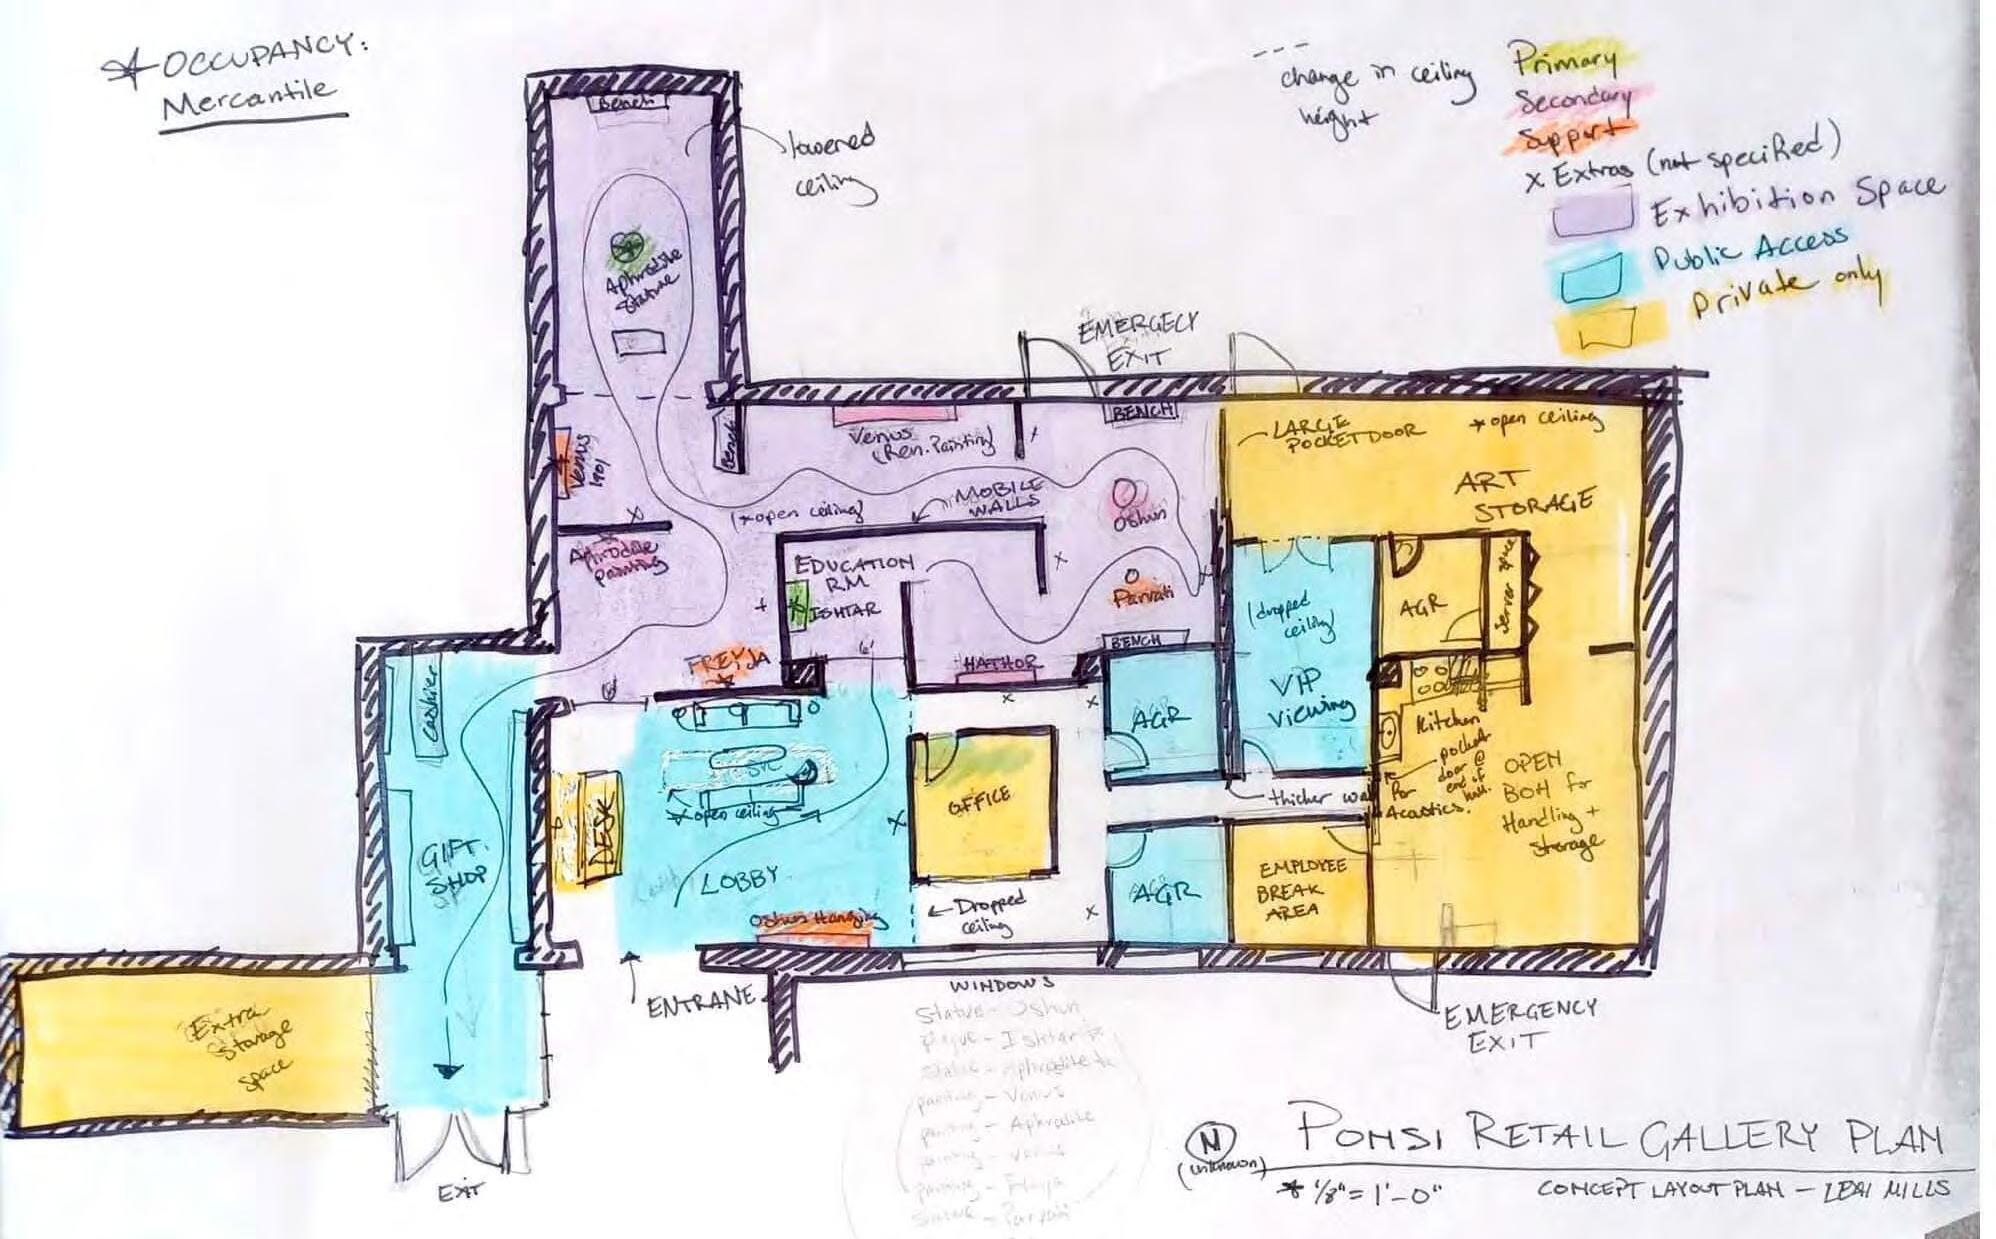 * OCCUPANCY:
Mercantile
---
change in ceiling
height
Primary
Secondary
Support
x Extras (not specified)
Exhibition Space
Public Access
Private only
Bench
lowered
ceiling
Aphrodite
Statue
EMERGECY
EXIT
Venus
1901
Bench
Venus
(Ren. Painting)
BENCH
LARGE
POCKET DOOR
* open ceiling
ART
STORAGE
(* open ceiling)
MOBILE
WALLS
Oshun
Aphrodite
painting
EDUCATION
RM.
ISHTAR
Parvati
(dropped
ceiling)
AGR
Server space
BENCH
FREYJA
6'
HATHOR
VIP
Viewing
AGR
Kitchen
pocket
door @
end of
hall.
Cashier
* open ceiling
DESK
OFFICE
thicker wall
For
Acoustics.
OPEN
BOH for
Handling +
Storage
GIFT
SHOP
LOBBY
AGR
EMPLOYEE
BREAK
AREA
Oshun Hanging
Dropped
ceiling
ENTRANE
WINDOWS
Statue - Oshun
Statue - Aphrodite
painting - Venus
painting - Aphrodite
painting - Venus
painting - Freyja
Statue - Parvati
Extra
Storage
Space
EMERGENCY
EXIT
EXIT
N
(unknown)
POMSI RETAIL GALLERY PLAN
* 1/8" = 1'-0"
CONCEPT LAYOUT PLAN - LEXI MILLS